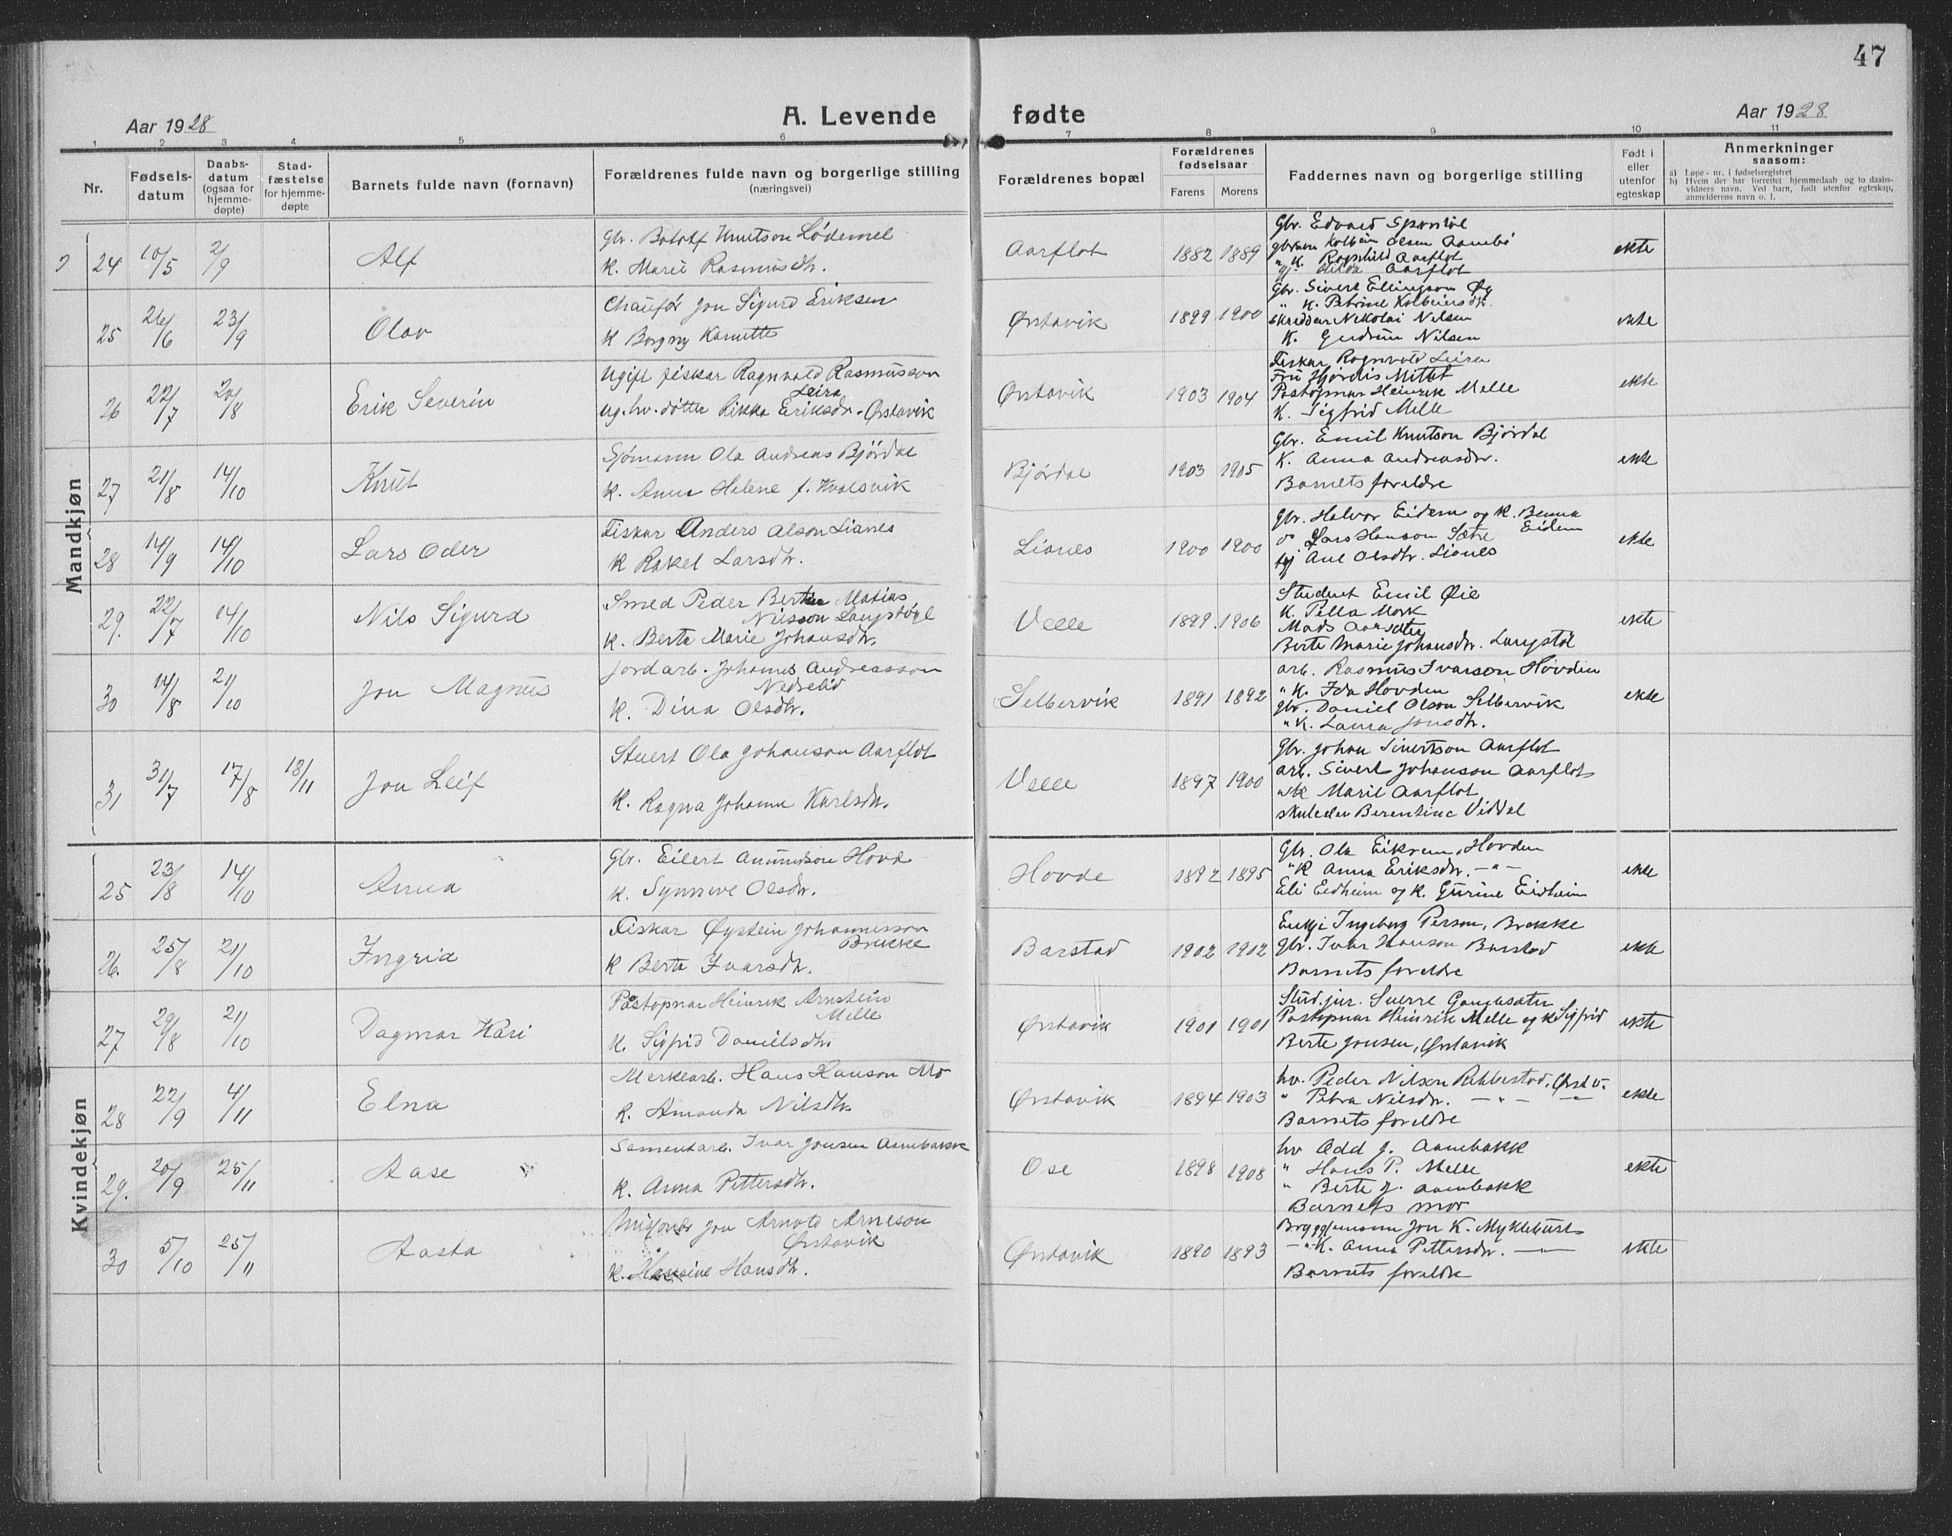 47
Aar 1928
A. Levende fødte
Aar 1928
1 2 3 4 5 6 7 8 9 10 11
Nr.
Fødsels-
datum
Daabs-
datum
(ogsaa for
hjemme-
døpte)
Stad-
fæstelse
for hjemme-
døpte
Barnets fulde navn (fornavn)
Forældrenes fulde navn og borgerlige stilling
(næringsvei)
Forældrenes bopæl
Forældrenes
fødselsaar
Farens Morens
Faddernes navn og borgerlige stilling
Født i
eller
utenfor
egteskap
Anmerkninger
saasom:
a) Løpe-nr. i fødselsregistret
b) Hvem der har forrettet hjemmedaab og to daabs-
vidners navn. Ved barn, født utenfor egteskap,
anmelderens navn o. l.
Mandkjøn
24 10/5 2/9 Alf
Gbr. Botolf Knutson Lødemel
K. Marie Rasmusdtr.
Aarflot 1882 1889
Gbr. Edvard
Kolbein Olsen Aambø
" K. Ragnhild Aarflot
gj. Hilda Aarflot
ekte
25 26/6 23/9 Olav
Chaufør Jon Sigurd Eriksen
K Borgny Kanutte
Ørstavik 1899 1900
Gbr. Sivert Ellingson Øy
" K. Petrine Kolbeinsdtr.
skredder Nikolai Nilsen
K. Gudrun Nilsen
ekte
26 22/7 20/8 Erik Severin
Ugift fiskar Ragnvald Rasmusson
Leira
ug. hv. døtter Rikka Eriksdtr. Ørstavik
Ørstavik 1903 1904
Fiskar Ragnvald Leira
Fru Hjørdis Mittet
Postopnar Heinrik Melle
K. Sigfrid Melle
ekte
27 21/8 14/10 Knut
Sjømann Ola Andreas Bjørdal
K. Anna Helene f. Kvalsvik
Bjørdal 1903 1905
Gbr. Emil Knutson Bjørdal
K. Anna Andreasdtr.
Barnets foreldre
ekte
28 14/9 14/10 Lars Oder
Fiskar Anders Olson Lianes
K Rakel Larsdtr.
Lianes 1900 1900
Gbr. Halvor Eidem og K. Benna
Eidem
Lars Hanson Sætre
gj Ane Olsdtr. Lianes
ekte
29. 22/7 14/10 Nils Sigurd
Smed Peder Matias
Nilsson Langstøyl
K. Berte Marie Johansdtr.
Velle 1899 1906
Student Emil Øie
K. Pella Mork
Mads Aarsæter
Berte Marie Johansdtr. Langstøl
ekte
30 14/8 21/10 Jon Magnus
Jordarb. Johannes Andreasson
Nedrelid
K. Dina Olsdtr.
Selbervik 1891 1892
arb. Rasmus Ivarson Hovden
" K. Ida Hovden
gbr. Daniel Olson Selbervik
" K. Laura Jonsdtr.
ekte
31 31/7 17/8 18/11 Jon Leif
Stuert Ola Johanson Aarflot
K. Ragna Johanne Karlsdtr.
Velle 1897 1900
Gbr. Johan Sivertson Aarflot
arb. Sivert Johanson Aarflot
K Marie Aarflot
Berentine Viddal
Kvindekjøn
25 23/8 14/10 Anna
Gbr. Eilert Amundson Hovde
K. Synneve Olsdtr.
Hovde 1892 1895
Gbr. Ola Eikrem, Hovden
" K Anna Eriksdtr. — " —
Eli Eidheim og K. Gurine Eidheim
ekte
26. 25/8 21/10 Ingrid
Fiskar Øystein Johannesson
Brekke
K Berte Ivarsdtr.
Barstad 1902 1902
Enkje Ingeborg Person, Brekke
Gbr. Ivar Hanson Barstad
Barnets foreldre
ekte
27 29/8 21/10 Dagmar Kari
Postopnar Heinrik Arnstein
Melle
K. Sigfrid Danielsdtr.
Ørstavik 1901 1901
Stud. jur. Sverre Gangesæter
Postopnar Heinrik Melle og K Sigfrid
Berte Jonsen, Ørstavik
ekte
28 22/9 4/11 Elna
Merkearb. Hans Hanson Mo
K. Amanda Nilsdtr.
Ørstavik 1894 1903
hv. Peder Nilsen Ribbestad, Ørstv.
" Petra Nilsdtr. — " —
Barnets foreldre
ekte
29. 20/9 25/11 Aase
Sementarb. Ivar Jonsen Aambakk
K. Anna Pettersdtr.
Ose 1898 1908
hv Odd J. Aambakk
" Hans P. Melle
" Berte J. Aambakk
Barnets mor
ekte
30 5/10 25/11 Aasta
Misjonær Jon Arnold Arneson
Ørstavik
K. Hansine Hansdtr.
Ørstavik 1890 1893
Jon K. Myklebust
— " K. Anna Pettersdtr. — " —
Barnets foreldre
ekte